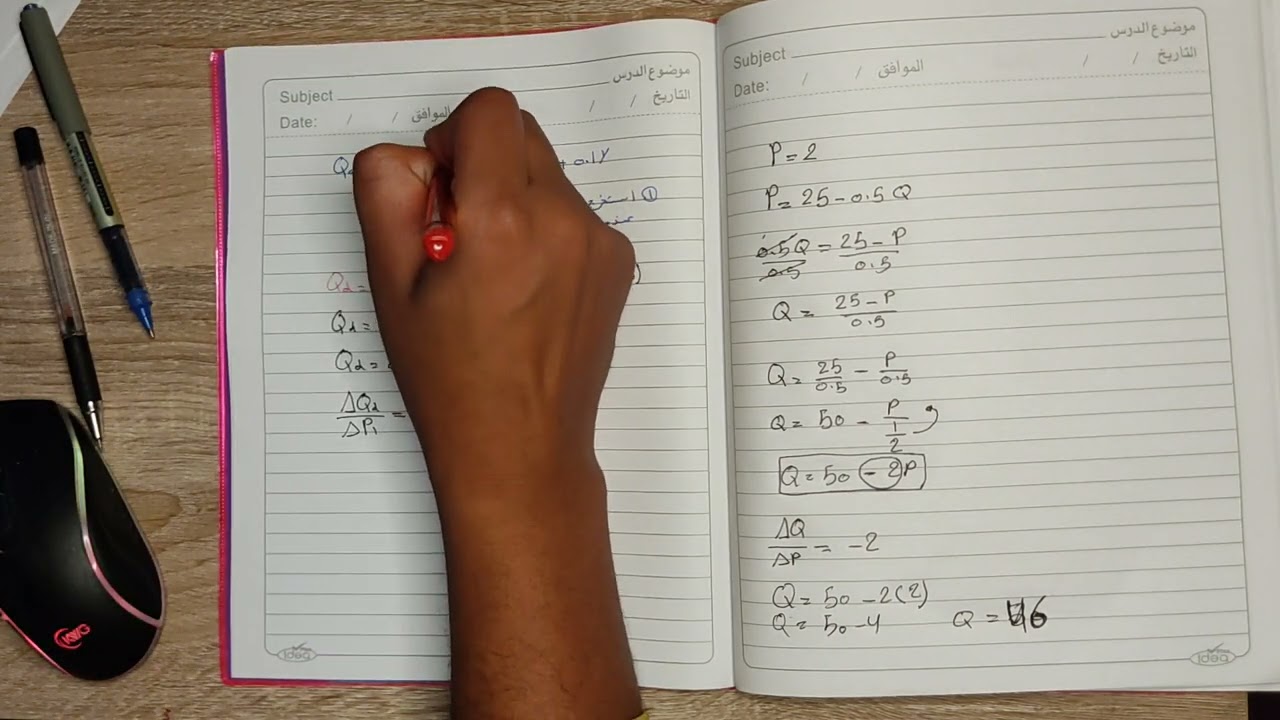 Subject موضوع الدرس
Date: / / الموافق / / التاريخ
+ 0.1y
①
Qd =
Qd =
Qd =
ΔQd/ΔP₁ =
ideq
Subject موضوع الدرس
Date: / / الموافق / / التاريخ
P = 2
P = 25 - 0.5 Q
0.5Q/0.5 = 25 - P/0.5
Q = 25 - P/0.5
Q = 25/0.5 - P/0.5
Q = 50 - P/1/2
Q = 50 - 2P
ΔQ/ΔP = -2
Q = 50 - 2(2)
Q = 50 - 4 Q = 46
ideq
KWG